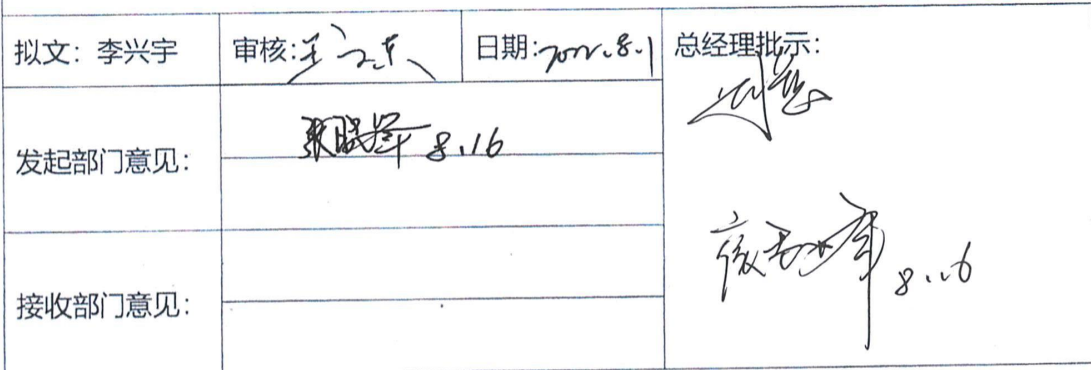 拟文:李兴宇 审核: 日期:2022.8.1 总经理批示:
发起部门意见: 张晓军 8.16
8.16
接收部门意见: